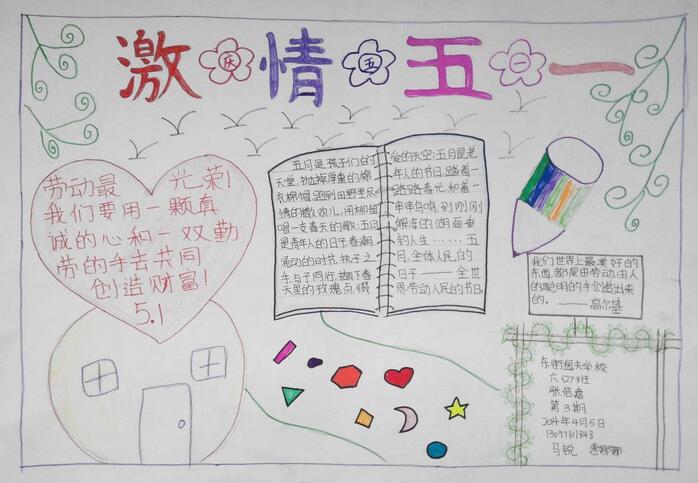 激情五一
庆五一
劳动最光荣!
我们要用一颗真
诚的心和一双勤
劳的手去共同
创造财富!
5.1
五月是孩子们的
天堂,抛掉厚重的棉
衣棉帽,跑到田野里尽
情的撒欢儿,用柳笛
唱一支春天的歌;五月
是青年人的日子,春潮
涌动的时节,执子之
手与子同行,撷下春
天里的玫瑰点缀
爱的天空;五月是老
年人的节日,踏着一
路踏春光,和着一
串串鸟鸣,到刚刚
解冻的湖面垂
钓人生……五
月,全体人民的
日子——全世
界劳动人民的节日
我们世界上最美好的
东西,都是由劳动、由人
的聪明的手创造出来
的。——高尔基
东街逸夫学校
六(27)班
第3期
2014年4月5日
马锐